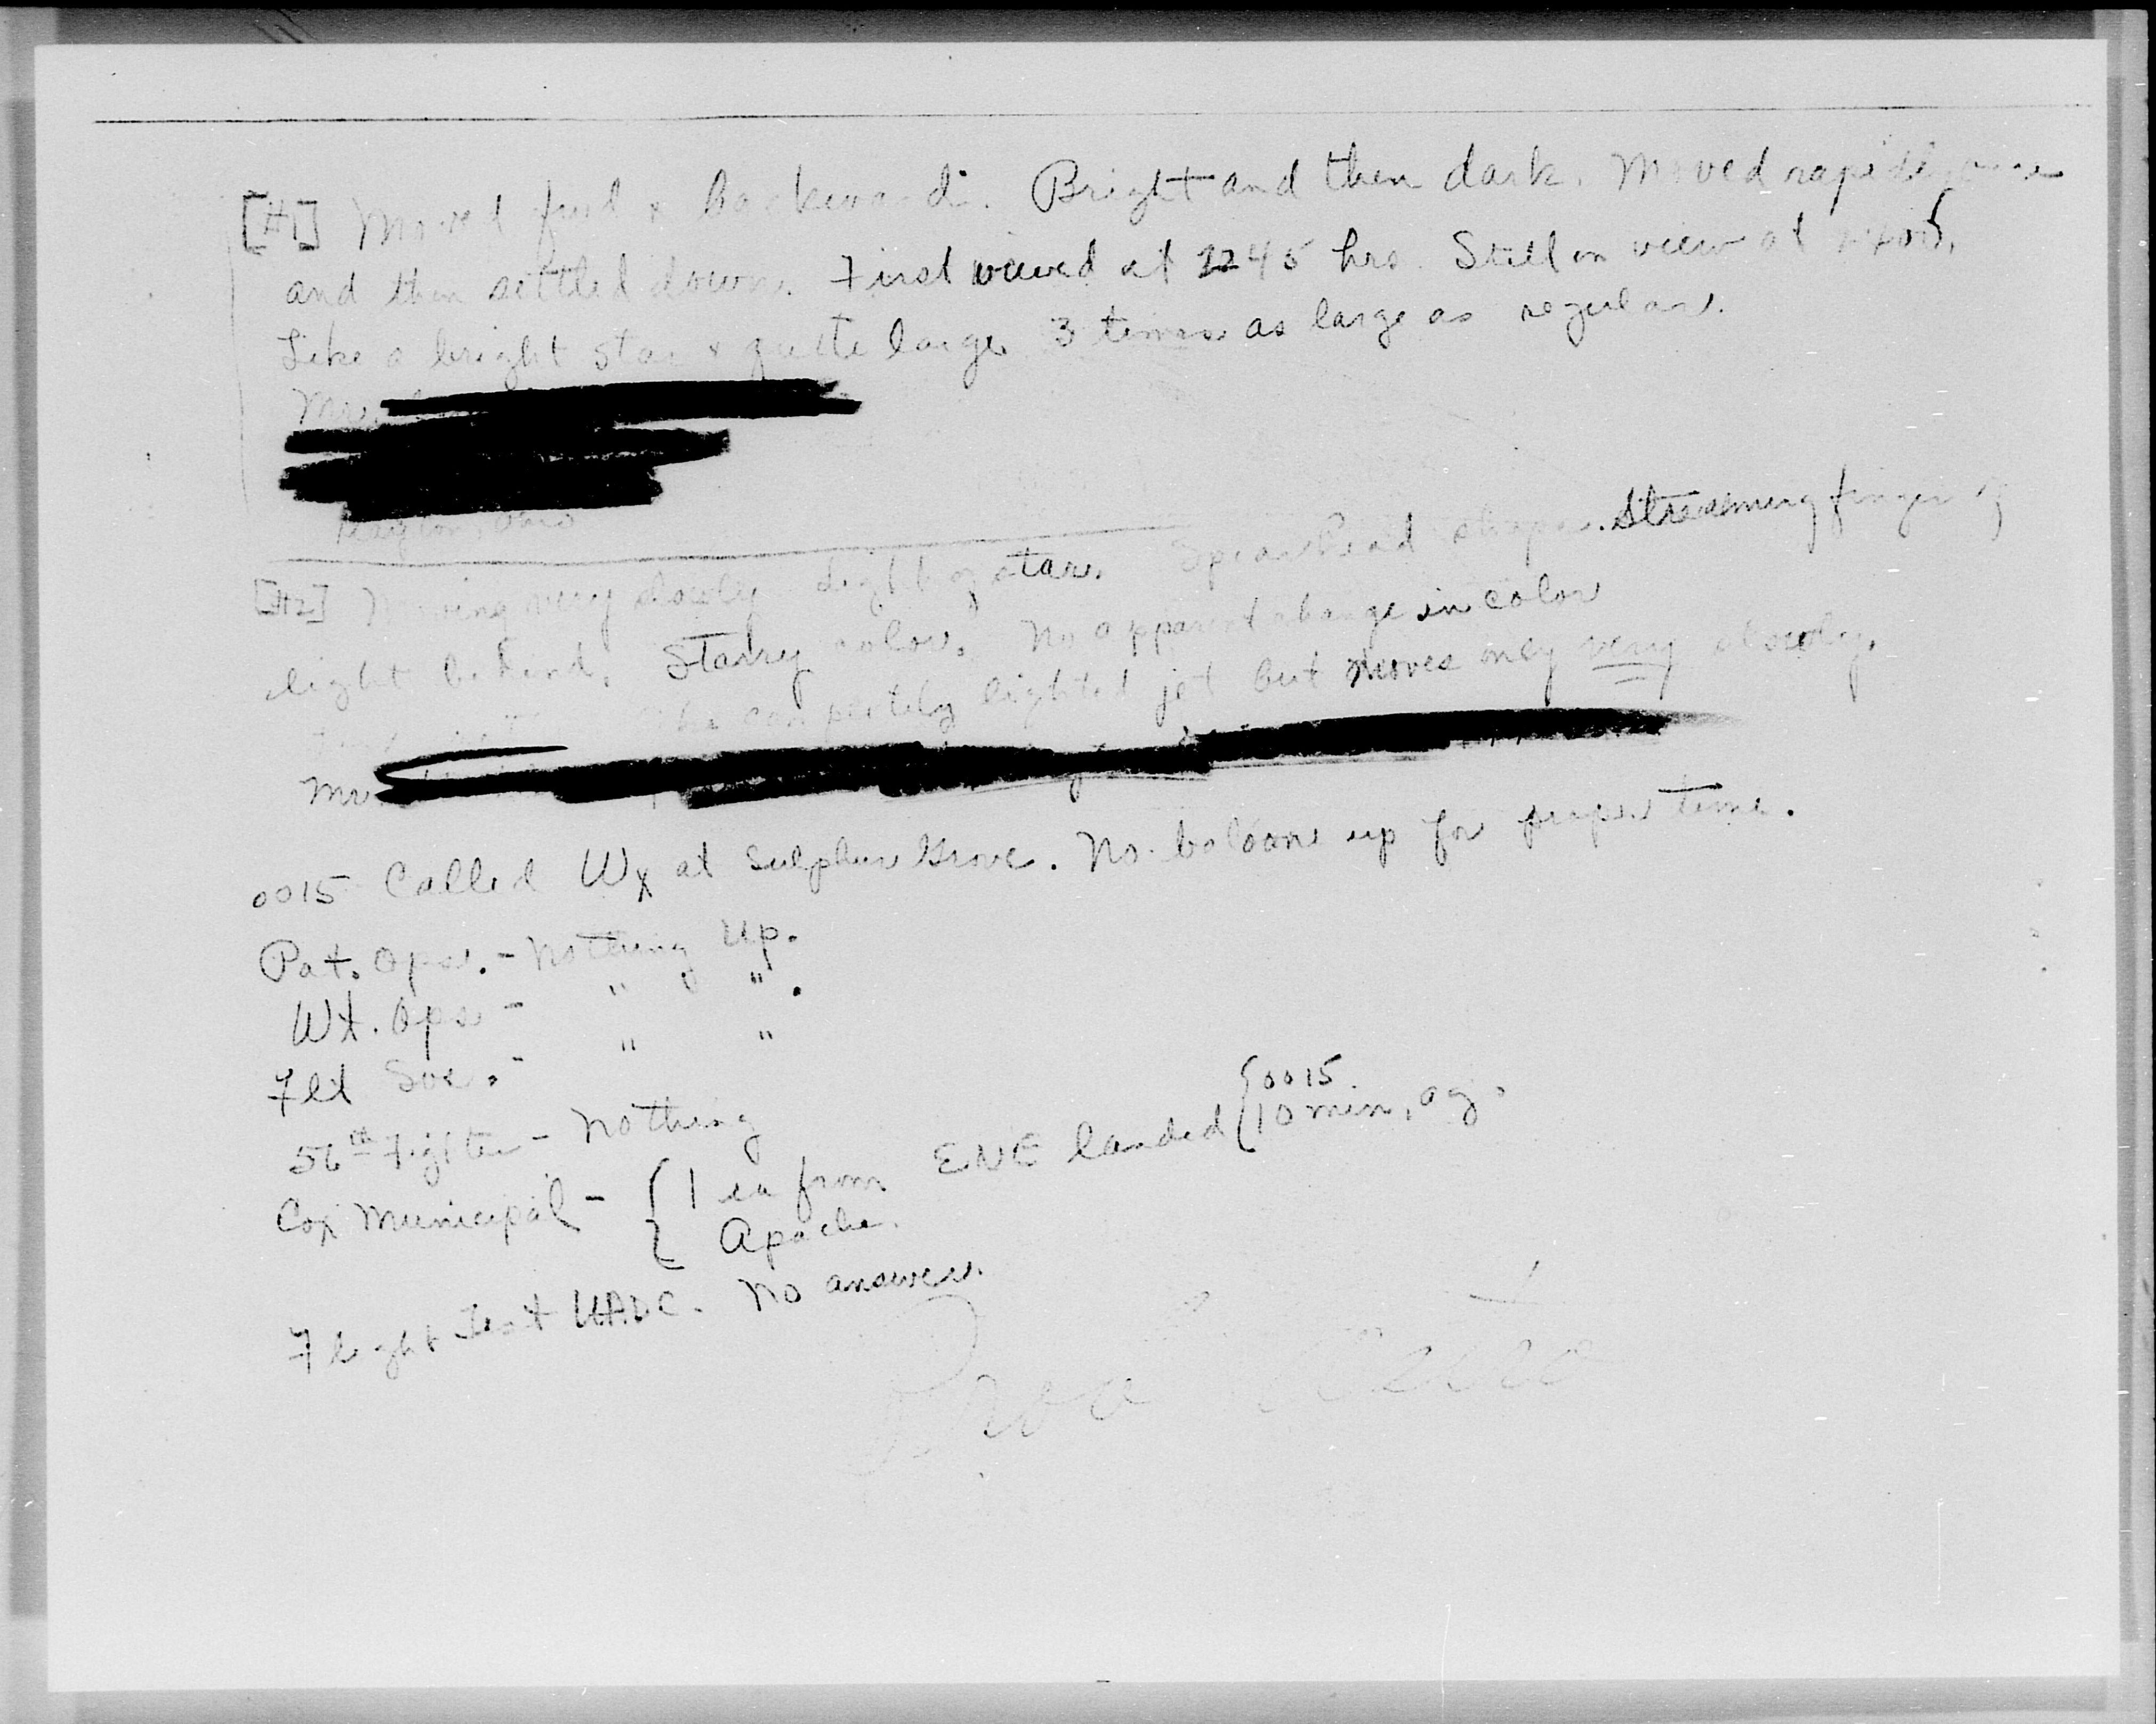 [#1] Moved fwd & backwards. Bright and then dark. Moved rapidly once
and then settled down. First viewed at 2245 hrs. Still in view at
Like a bright star & quite large 3 times as large as regular.
Mrs.
Dayton, Ohio
[#2] Moving very slowly light of star. Spearhead shape. Streaming finger of
light behind. Starry color. No apparent change in color
like completely lighted jet but moves only very slowly.
Mr
0015 Called Wx at Sulphur Grove. No baloons up for proper time.
Pat. Ops. - Nothing Up.
Wt. Ops - " " .
Flt Svc. - " "
56th Fighter - Nothing
{0015
Cox Municipal - {1 ea from ENE landed {10 min. ag.
Apache.
Flight Test WADC. No answer.